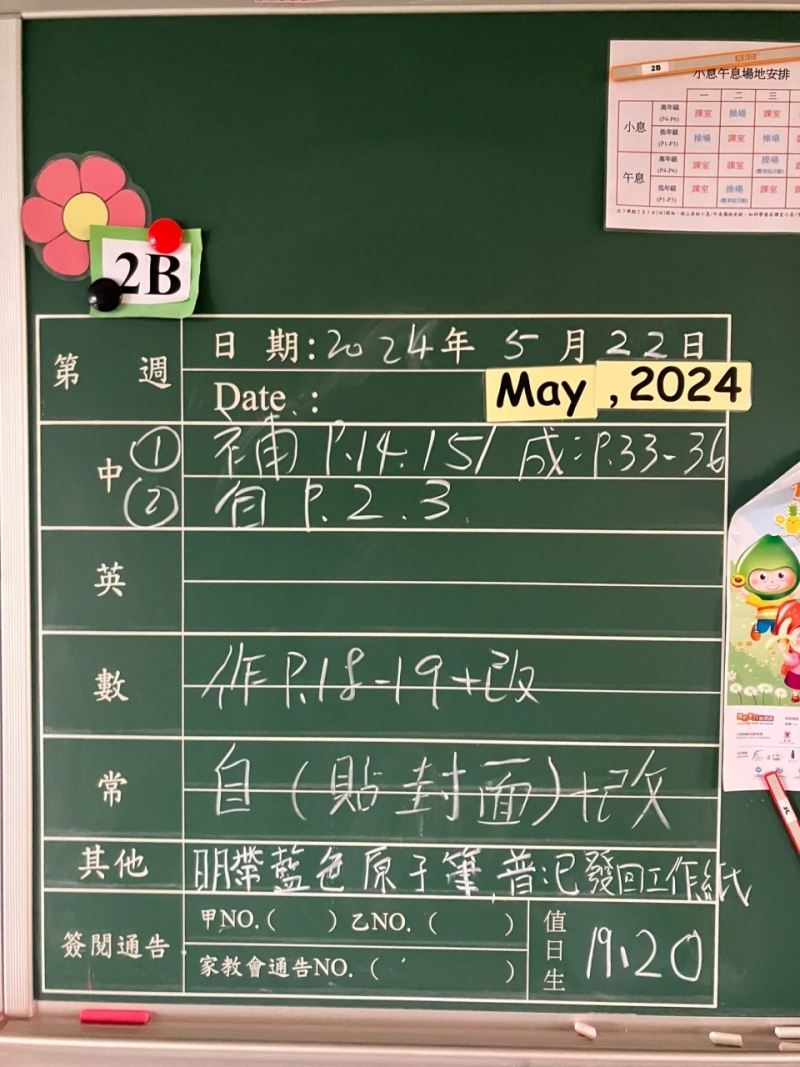 2B
小息午息場地安排
一 二 三
小息 高年級 (P4-P6) 課室 操場 課室
低年級 (P1-P3) 操場 課室 操場
午息 高年級 (P4-P6) 課室 課室 操場
低年級 (P1-P3) 課室 操場 課室
2B
第 週 日 期：2024年 5月22日
Date :
May , 2024
中 ① 補 P.14.15/ 成：P.33-36
② 自 P.2.3
英
數 作P.18-19+改
常 自（貼封面）+改
其他 明帶藍色原子筆，普：已發回工作紙
簽閱通告 甲NO.( ) 乙NO. ( )
家教會通告NO. ( )
值日生 19、20